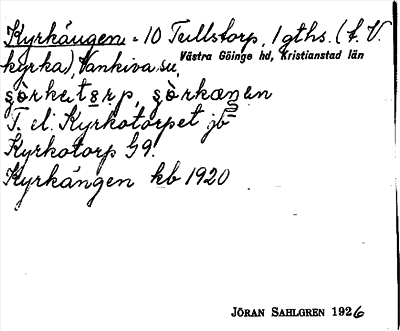 Kyrkängen = 10 Tullstorp, 1 gths. (f. V.
Västra Göinge hd, Kristianstad län
kyrka), Vankiva su,
T. el. Kyrkotorpet jb
Kyrkotorp G9.
Kyrkängen kb 1920
JÖRAN SAHLGREN 1926